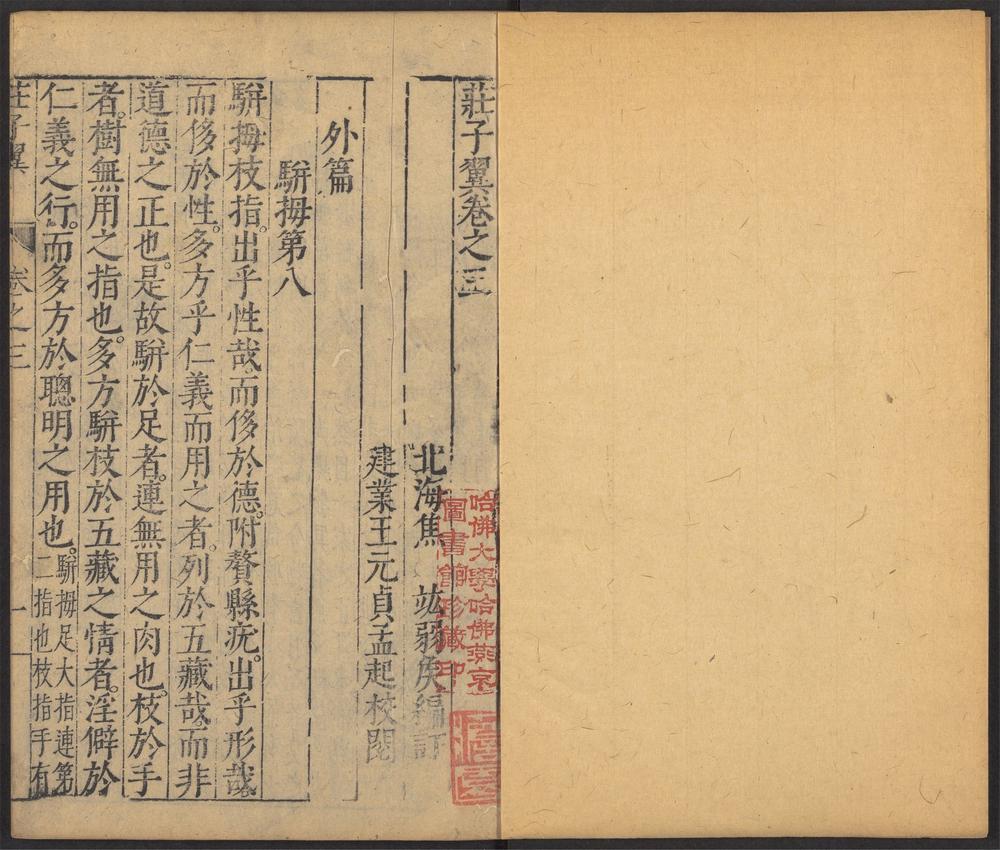 莊子翼卷之三
北海焦 竑弱侯編訂
建業王元貞孟起校閱
外篇
駢拇第八
駢拇枝指。出乎性哉。而侈於德。附贅縣疣。出乎形哉。
而侈於性。多方乎仁義而用之者。列於五藏哉。而非
道德之正也。是故駢於足者。連無用之肉也。枝於手
者。樹無用之指也。多方駢枝於五藏之情者。淫僻於
仁義之行。而多方於聰明之用也。
駢拇足大指連第
二指也枝指手有
莊子翼 卷之三 一
哈佛大學哈佛燕京
圖書館珍藏印